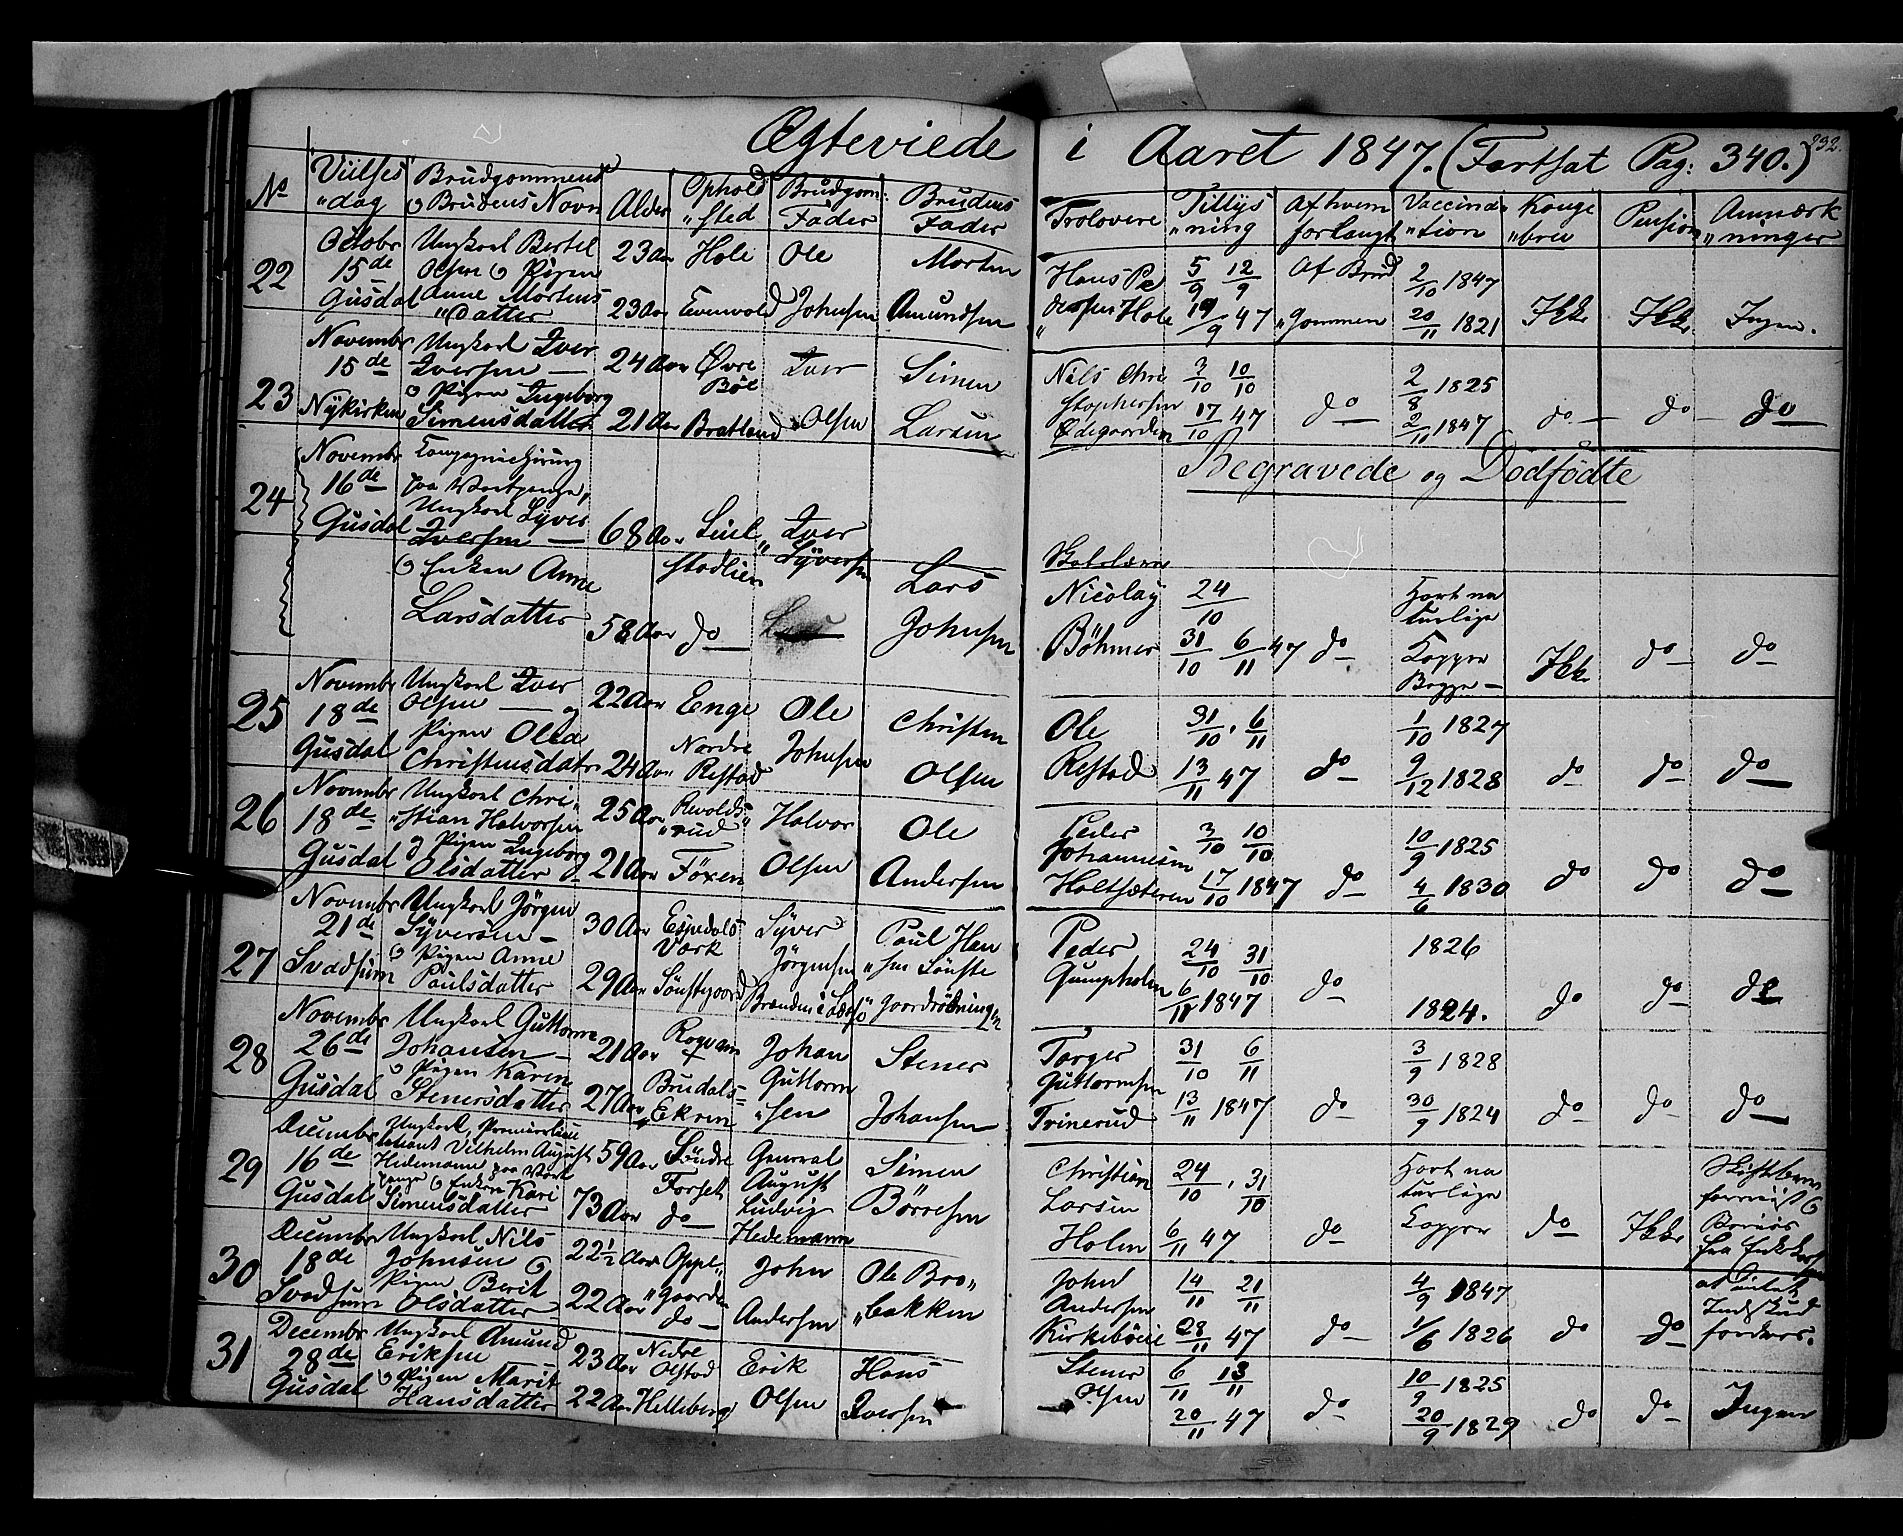 Ægteviede i Aaret 1847. (Fortsat Pag: 340.) 232.
No Vielses "dag Brudgommens og Brudens Navn Alder Ophold "sted Brudgom: Fader Brudens Fader Trolovere Tillys "ning Af hvem forlangt Vaccina "tion Konge "brev Pension Anmærk "ninger
22
Octobr
15de
Gusdal
Ungkarl Bertel
Olsen og Pigen
Anne Mortens
"datter
23 Aar
23 Aar
Hole
Evenvold
Ole
Johnsen
Morten
Amundsen
Hans Pe
"dersen Hole
5/9 12/9
19/9 47
Af Brud
"gommen
2/10 1847
20/11 1821
Ikke
Ikke
Ingen.
23
Novembr
15de
Nykirken
Ungkarl Iver
Iversen —
og Pigen Ingeborg
Simensdatter
24 Aar
21 Aar
Øvre
Böe
Bratland
Iver
Olsen
Simen
Larsen
Nils Chri
stophersen
Ødegaarden
3/10 10/10
17/10 47
do
2/8 1825
2/11 1847
do —
do —
do
Begravede og Dødfødte
24
Novembr
16de
Gusdal
paa Vartpenge,
Ungkarl Syver
Iversen —
og Enken Anne
Larsdatter
68 Aar
58 Aar
stadlien
do
Iver
Syversen
Lars
Johnsen
Nicolay
Böhmer
24/10
31/10 6/11 47
do
Havt na
turlige
Kopper
Ikke
do
do
25
Novembr
18de
Gusdal
Ungkarl Iver
Olsen — og
Pigen Olea
Christensdatr
22 Aar
24 Aar
Enge
Nordre
Restad
Ole
Johnsen
Christen
Olsen
Ole
Restad
31/10 . 6/11
13/11 47
do
1/10 1827
9/12 1828
do
do
do
26
Novembr
18de
Gusdal
Ungkarl Chri
"stian Halvorsen
og Pigen Ingeborg
Olsdatter
25 Aar
21 Aar
Revolds
"rud
Föxen
Halvor
Olsen
Ole
Andersen
Peder
Johannesen
Holtsæteren
3/10 10/10
17/10 1847
do
10/9 1825
4/6 1830
do
do
do
27
Novembr
21de
Svadsum
Ungkarl Jörgen
Syversen —
og Pigen Anne
Paulsdatter
30 Aar
29 Aar
Espedals
Værk
Sönstegaard
Syver
Jörgensen
Paul Han
"sen Sönste
"gaardrödningen
Peder
24/10 31/10
6/11 1847
do
1826
1824.
do
do
do
28
Novembr
26de
Gusdal
Ungkarl Guttorm
Johansen —
og Pigen Karen
Stenersdatter
21 Aar
27 Aar
Brudals=
"Ekren
Johan
Guttorm
"sen
Stener
Johansen
Torger
Guttormsen
Trinerud
31/10 6/11
13/11 1847
do
3/9 1828
30/9 1824
do
do
do
29
Decembr
16de
Gusdal
Ungkarl, Premierlieu
tenant Vilhelm August
Hedemann paa Vart
penge og Enken Kari
Simensdatter
59 Aar
73 Aar
Söndre
Forset
do
General
August
Ludvig
Hedemann
Simen
Börresen
Christian
Larsen
Holen
24/10 . 31/10
6/11 47
do
Havt na
turlige
Kopper
do
Ikke
30
Decembr
18de
Svadsum
Ungkarl Nils
Johnsen og
Pigen Berit
Olsdatter
22 1/2 Aar
22 Aar
Oppe
"gaarden
do
John
Andersen
Ole Bro
"bakken
John
Andersen
14/11 21/11
28/11 47
do
4/9 1847
1/6 1826
do
do
31
Decembr
28de
Gusdal
Ungkarl Amund
Eriksen
og Pigen Marit
Hansdatter
23 Aar
22 Aar
Nedre
Olstad
Helleberg
Erik
Olsen
Hans
Iversen
Stener
Olsen
6/11 13/11
20/11 47
do
10/9 1825
20/9 1829
do
do
Ingen